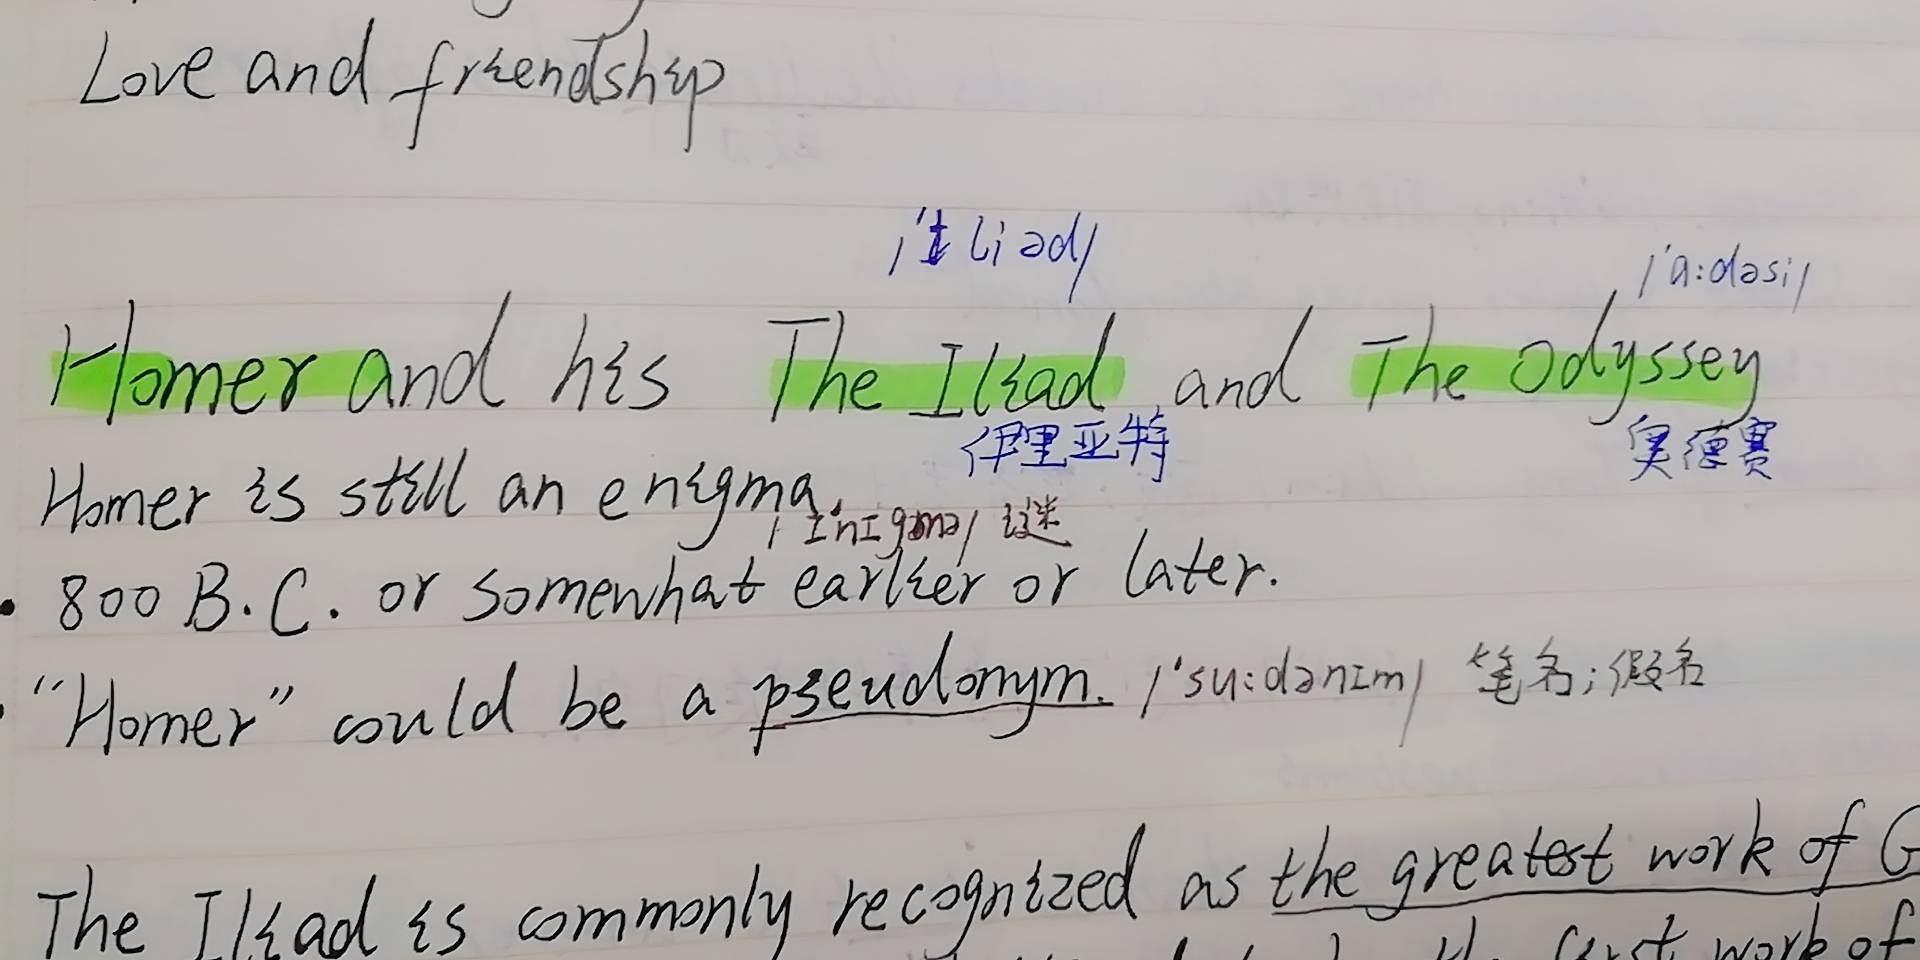 Love and friendship
/'ɪliəd/
/'ɑ:dəsi/
Homer and his The Iliad and The Odyssey
伊里亚特
奥德赛
Homer is still an enigma.
/ɪ'nɪgmə/ 谜
800 B.C. or somewhat earlier or later.
"Homer" could be a pseudonym. /'su:dənɪm/ 笔名;假名
The Iliad is commonly recognized as the greatest work of G
first work of